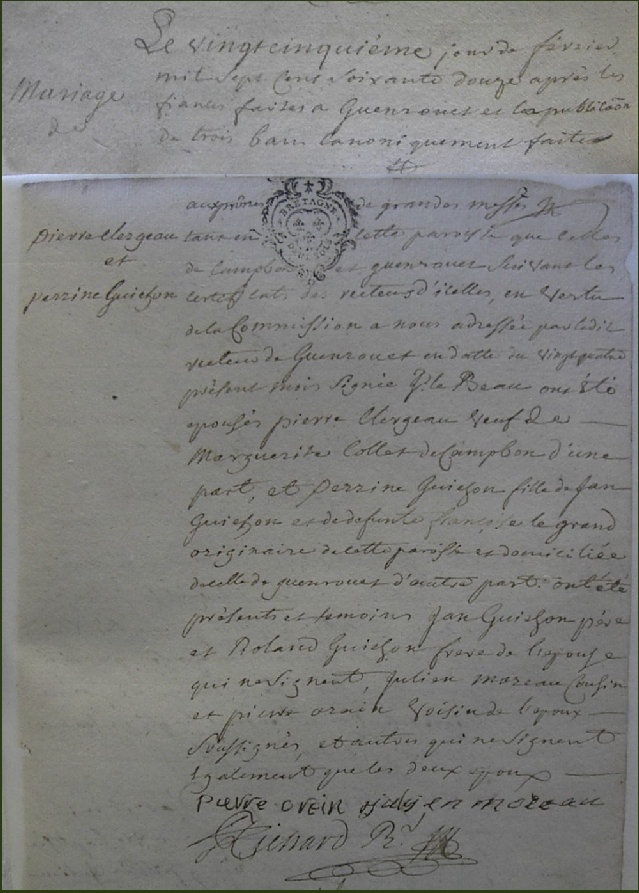 Le vingtcinquiéme jour de février
mil sept Cent soixante douze après les
Mariage
fiances faites a Guenrouet et la publication
de
de trois bans Canoniquement faites
aux prônes de grandes messes
BRETAGNE
Pierre Clergeau
tant en cette paroisse que Celles
et
de Campbon et guenrouet suivant les
perrine Guichon
Certificats des recteurs d'icelles, en vertu
de la Commission a nous adressée par ledit
recteur de Guenrouet en datte du vingtquatre
présent mois signée le Beau ont été
epousés pierre Clergeau veuf de
Marguerite Collet de Campbon d'une
part, et perrine Guichon fille de Jan
Guichon et de defunte françoise le grand
originaire de cette paroisse et domiciliée
de celle de guenrouet d'autre part. ont été
présents et temoins Jan Guichon pére
et Roland Guichon frere de l'epouse
qui ne signent, Julien moreau Cousin
et pierre orain voisin de l'epoux
soussignés, et autres qui ne signent
egalement que les deux epoux
Pierre orein julien moreau
Richard Rr